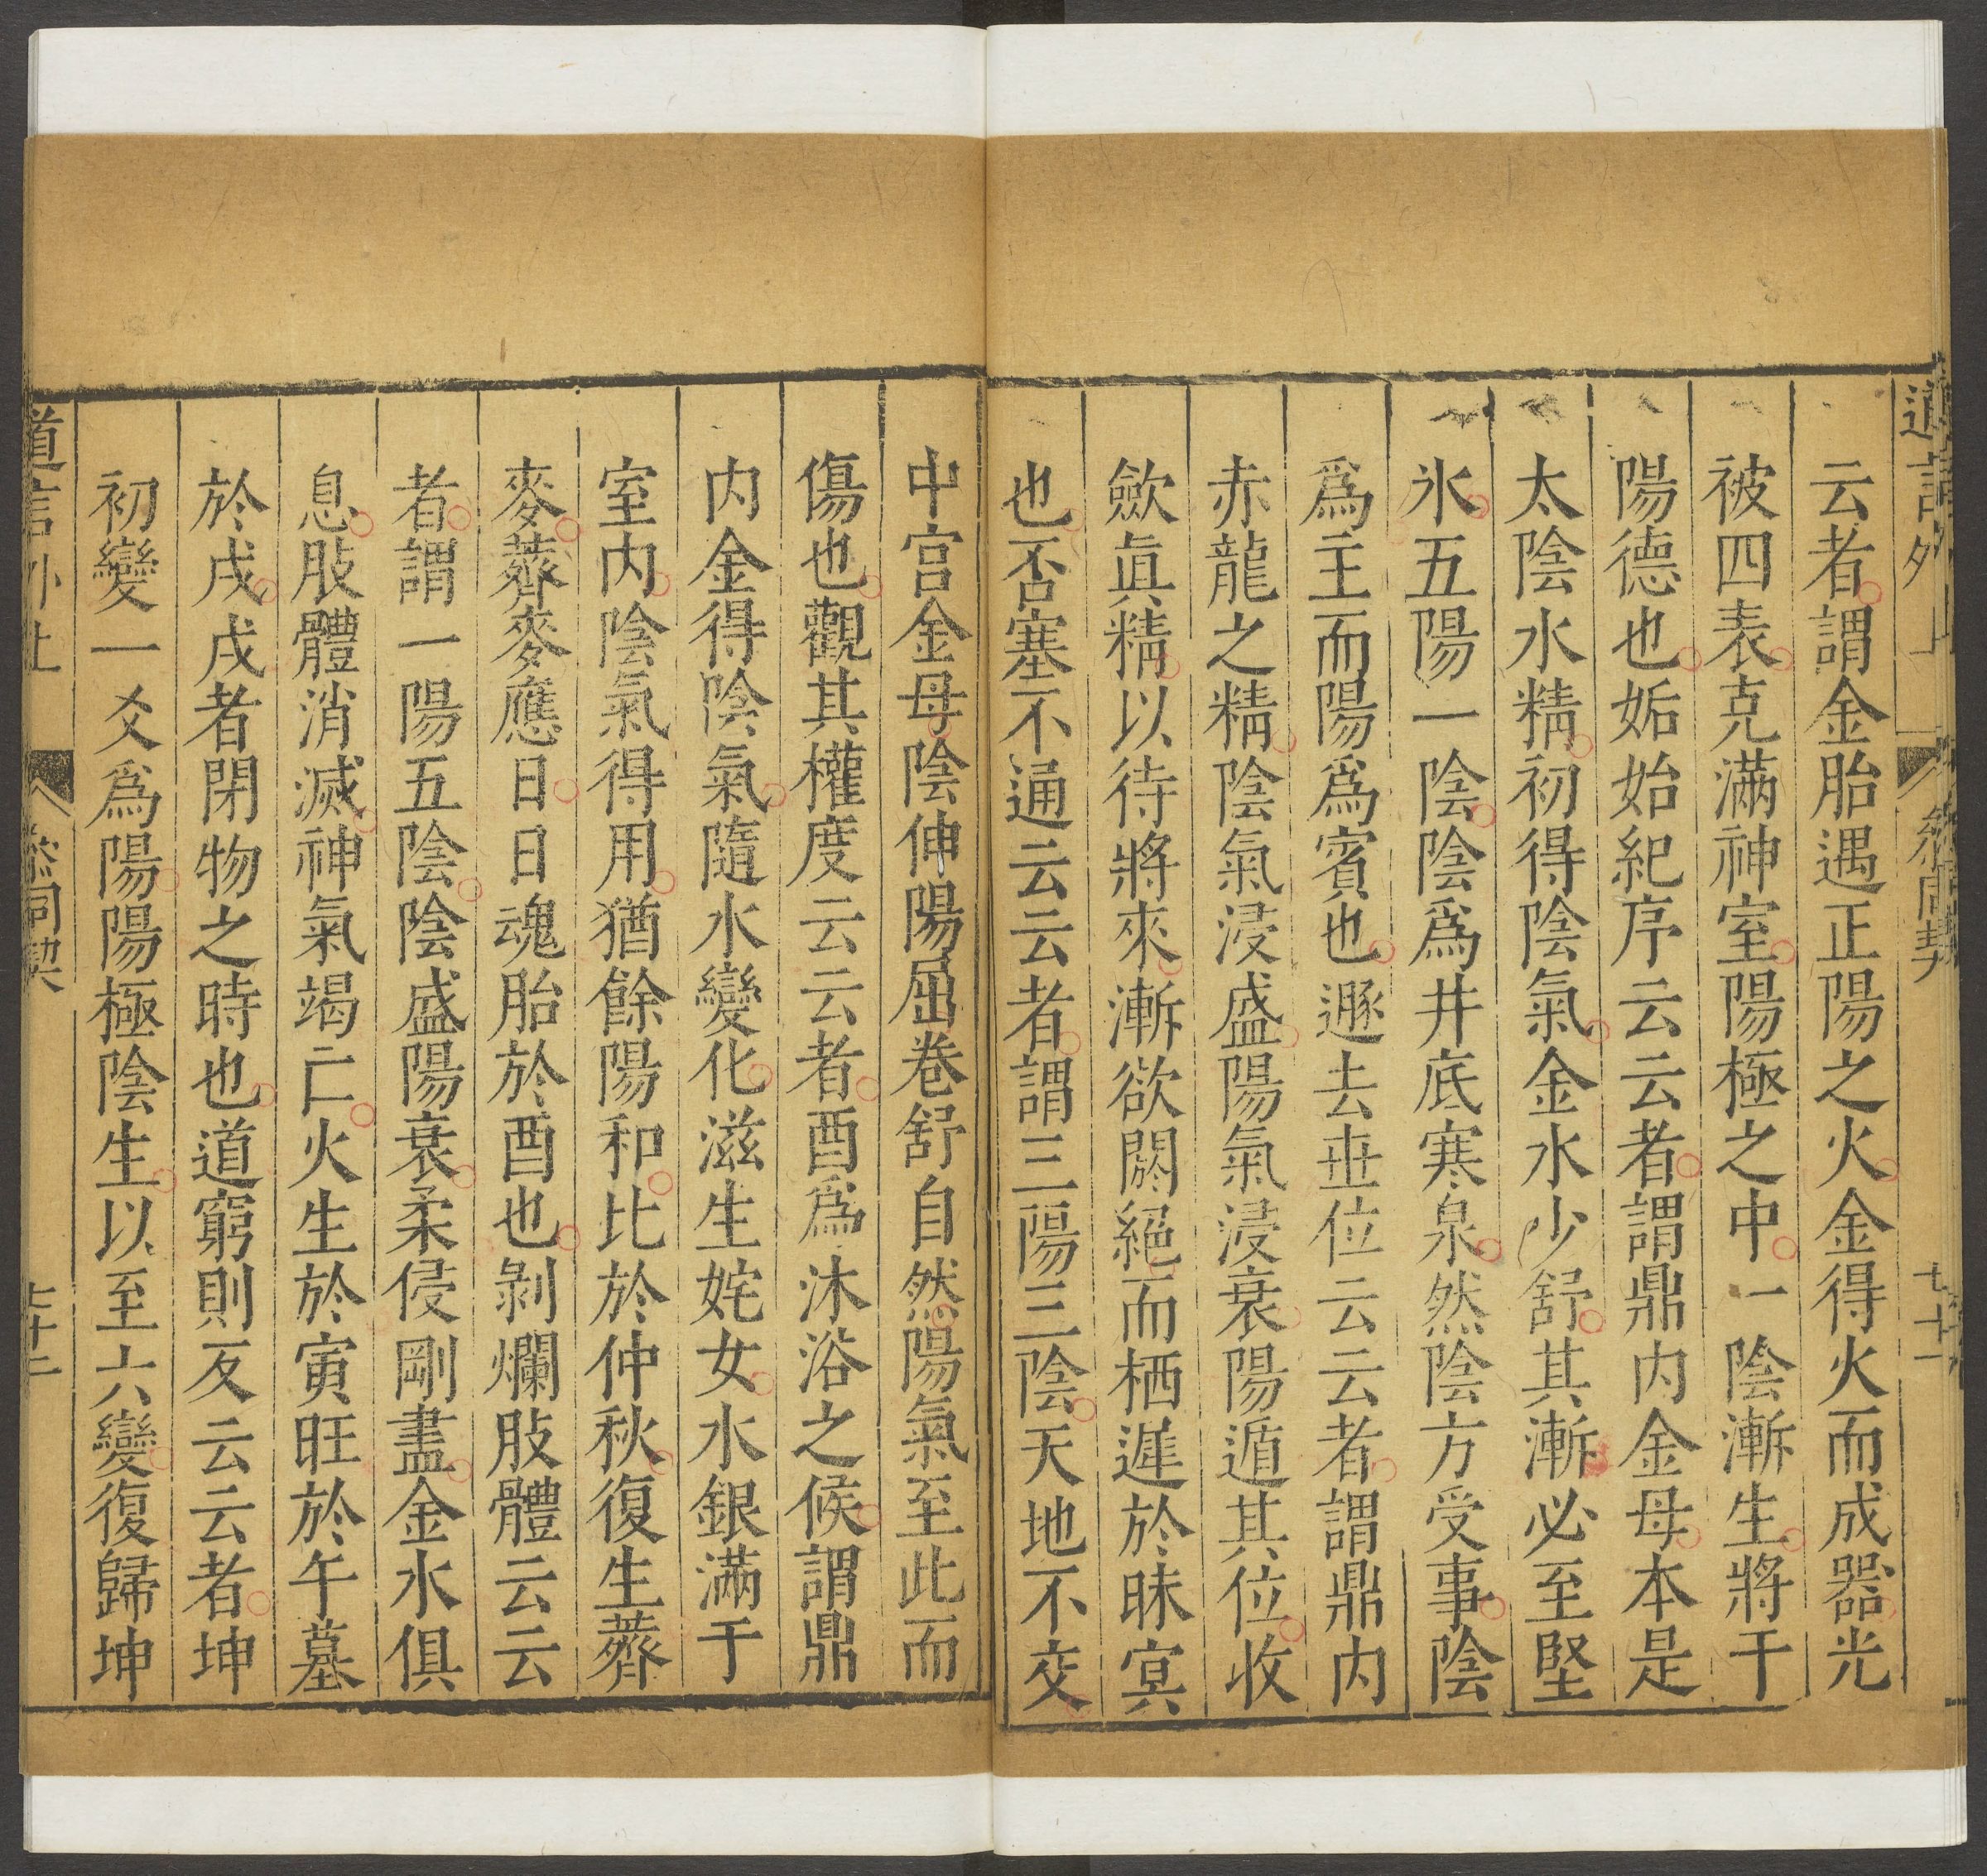 道言外
七十一
云者謂金胎遇正陽之火金得火而成器光
被四表克滿神室陽極之中一陰漸生將干
陽德也姤始紀序云云者謂鼎内金母本是
太陰水精初得陰氣金水少舒其漸必至堅
氷五陽一陰陰爲井底寒泉然陰方受事陰
爲主而陽爲賓也遯去丗位云云者謂鼎内
赤龍之精陰氣浸盛陽氣浸衰陽遁其位收
歛眞精以待將來漸欲闕絕而栖遲於昧㝠
也否塞不通云云者謂三陽三陰天地不交
中宫金母陰伸陽屈卷舒自然陽氣至此而
傷也觀其權度云云者酉爲沐浴之候謂鼎
内金得陰氣隨水變化滋生姹女水銀滿于
室内陰氣得用猶餘陽和比於仲秋復生薺
麥薺麥應日日魂胎於酉也剝爛肢體云云
者謂一陽五陰陰盛陽衰柔侵剛盡金水俱
息肢體消滅神氣竭亡火生於寅旺於午墓
於戌戌者閉物之時也道窮則反云云者坤
初變一爻爲陽陽極陰生以至六變復歸坤
道言外上
叅同契
七十二